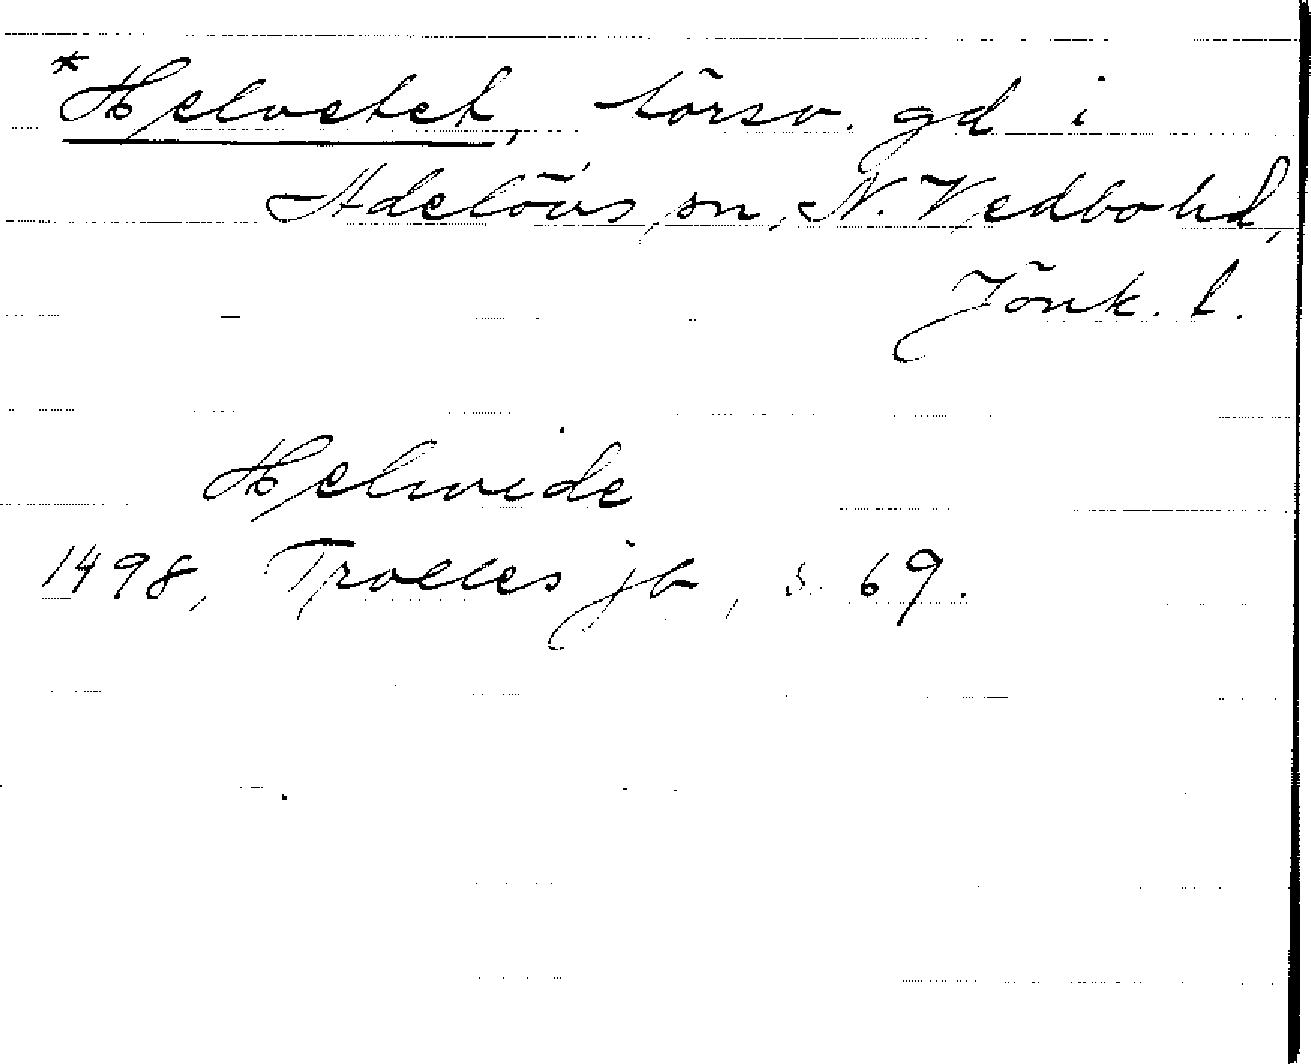 *Helvetet, försv. gd i
Adelövs sn, N. Vedbo hd,
Jönk. l.
Helwide
1498, Trolles jb, s. 69.